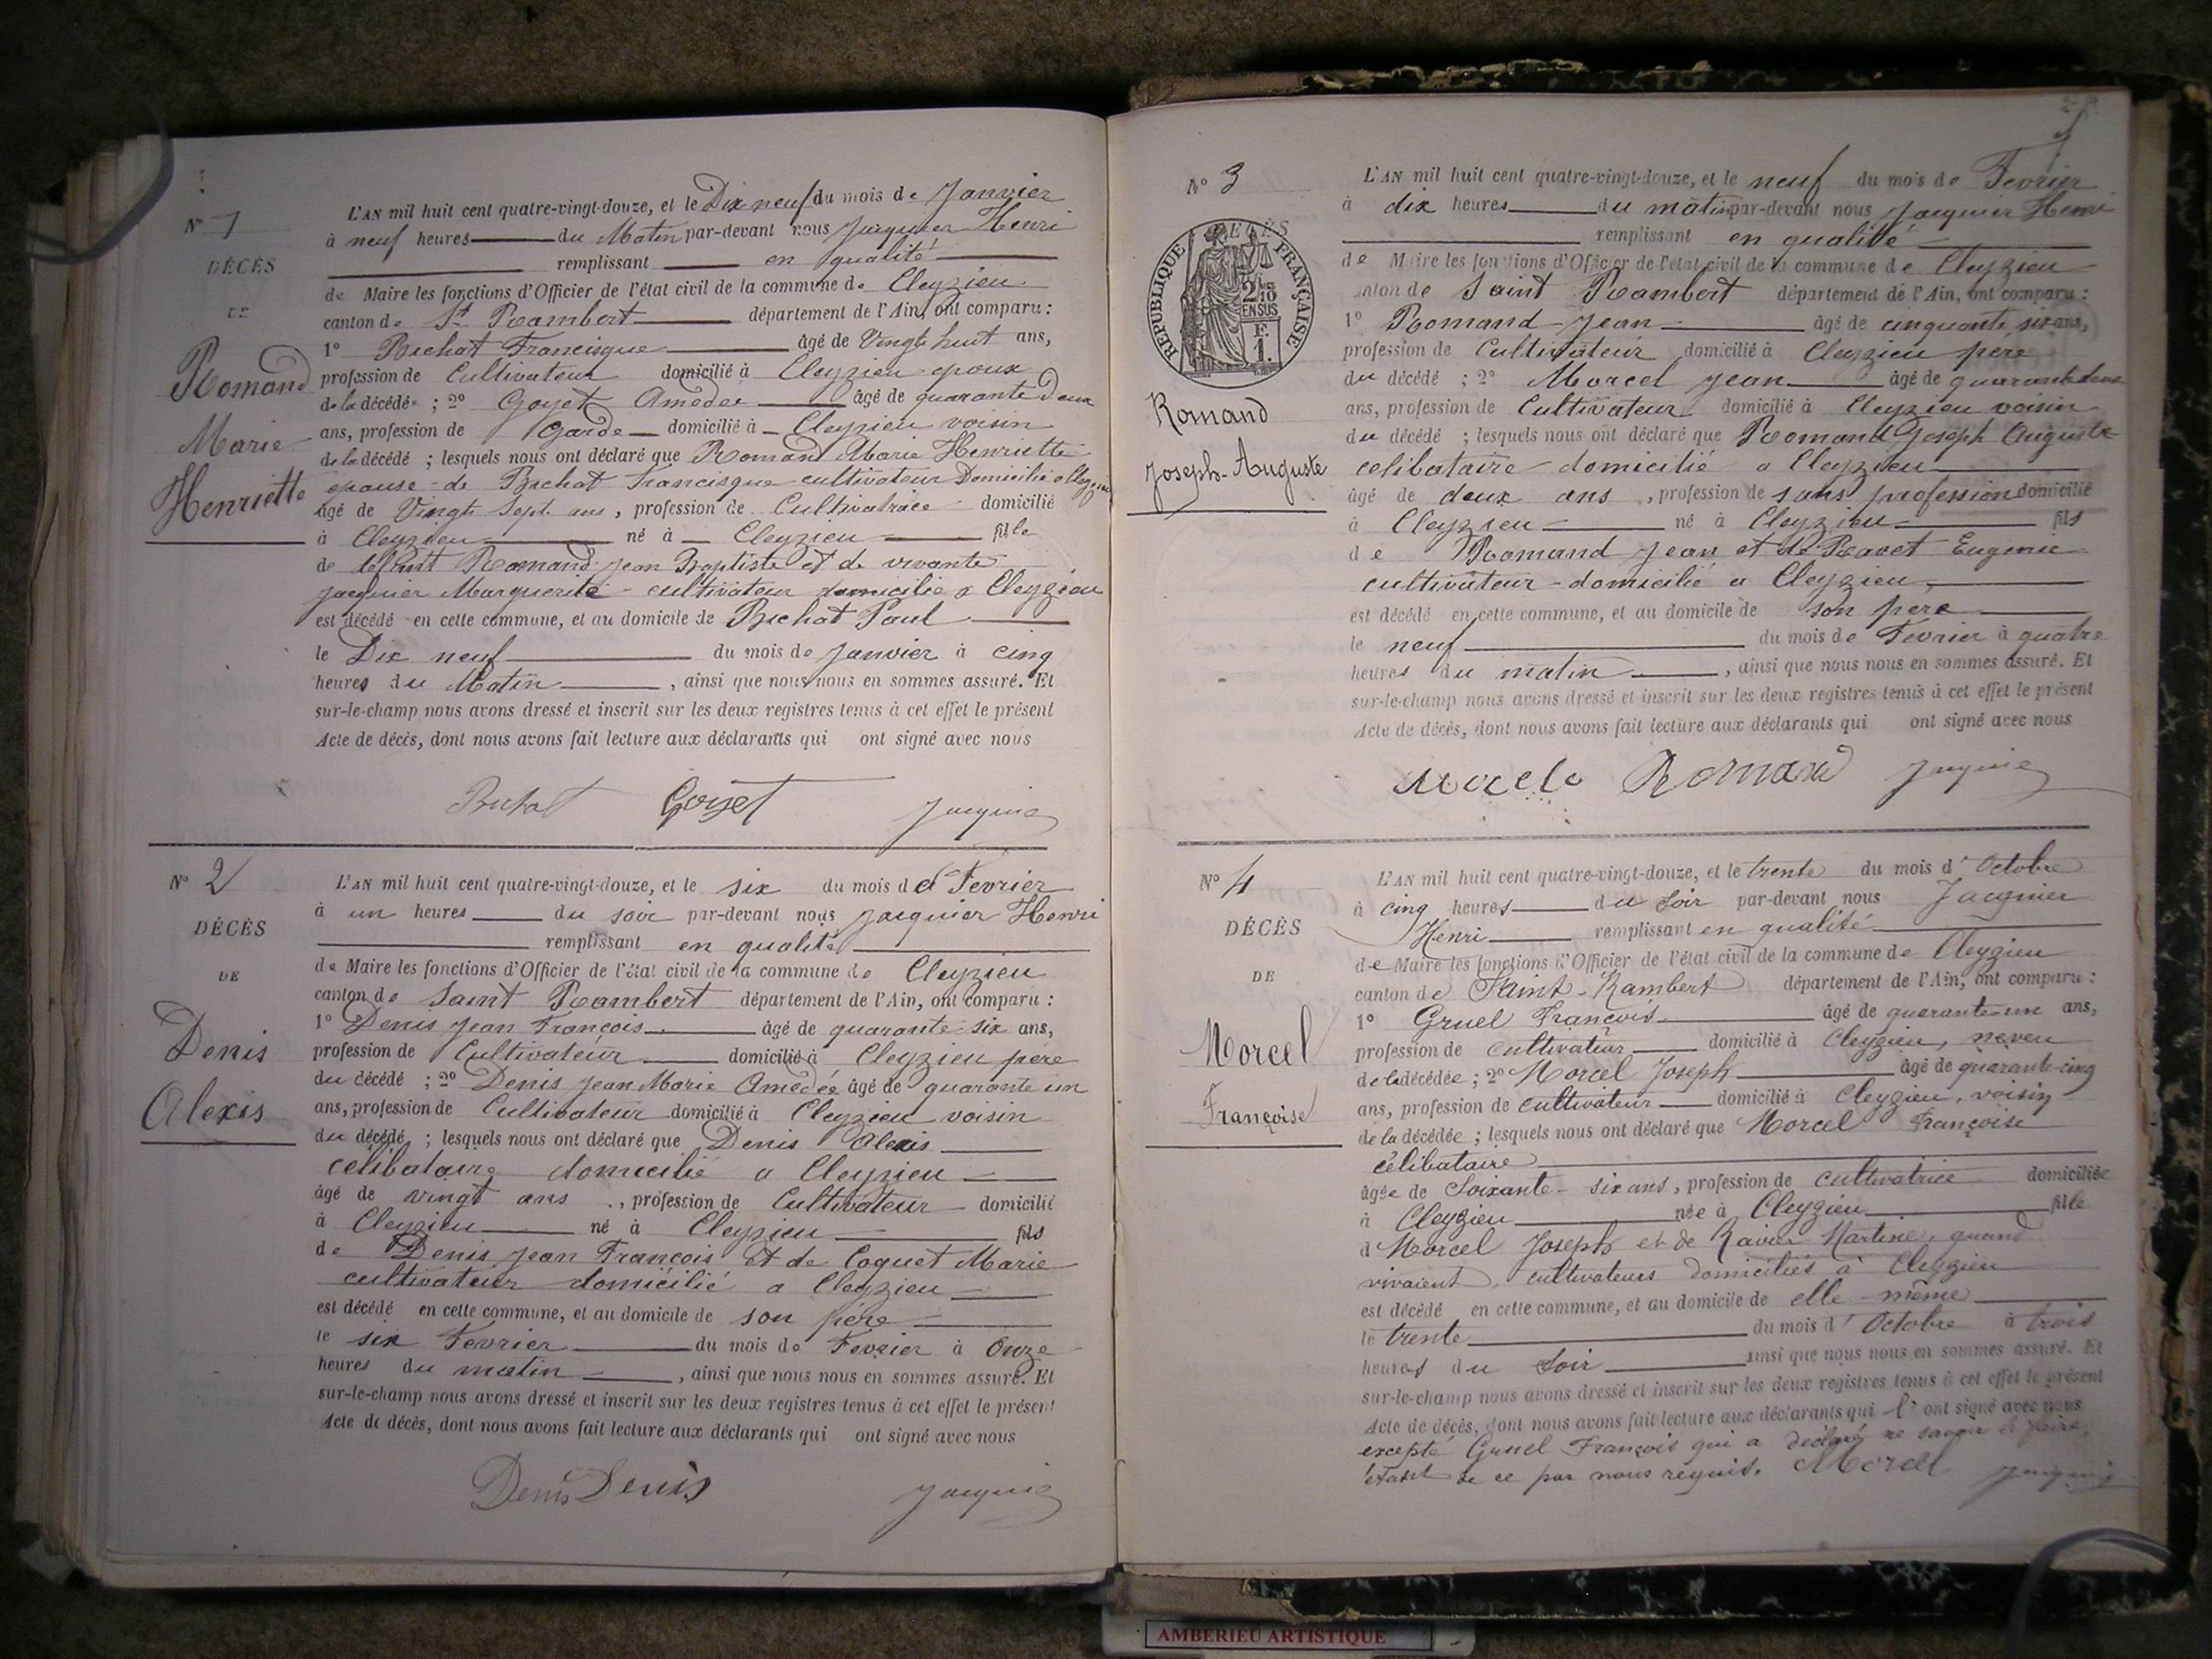 N° 1
DÉCÈS
DE
Romand
Marie
Henriette
L'AN mil huit cent quatre-vingt-douze, et le Dix neuf du mois de Janvier
à neuf heures du Matin par-devant nous Jacquier Henri
remplissant en qualité
de Maire les fonctions d'Officier de l'état civil de la commune de Cleyzieu
canton de St Rambert département de l'Ain, ont comparu :
1° Bichat Francisque âgé de Vingt huit ans,
profession de Cultivateur domicilié à Cleyzieu epoux
de la décédée ; 2° Goyet Amedée âgé de quarante Deux
ans, profession de Garde domicilié à Cleyzieu voisin
de la décédé ; lesquels nous ont déclaré que Romand Marie Henriette
epouse de Bichat Francisque cultivateur Domicilié a Cleyzieu
âgé de Vingt Sept ans, profession de Cultivatrice domicilié
à Cleyzieu né à Cleyzieu fille
de defunt Romand Jean Baptiste et de vivante
Jacquier Marguerite cultivateur domicilié a Cleyzieu
est décédé en cette commune, et au domicile de Bichat Paul
le Dix neuf du mois de Janvier à cinq
heures du Matin, ainsi que nous nous en sommes assuré. Et
sur-le-champ nous avons dressé et inscrit sur les deux registres tenus à cet effet le présent
Acte de décès, dont nous avons fait lecture aux déclarants qui ont signé avec nous
Bichat Goyet Jacquier
N° 2
DÉCÈS
DE
Denis
Alexis
L'AN mil huit cent quatre-vingt-douze, et le six du mois de Fevrier
à un heures du soir par-devant nous Jacquier Henri
remplissant en qualité
de Maire les fonctions d'Officier de l'état civil de la commune de Cleyzieu
canton de Saint Rambert département de l'Ain, ont comparu :
1° Denis Jean François âgé de quarante six ans,
profession de Cultivateur domicilié à Cleyzieu père
du décédé ; 2° Denis Jean Marie Amédée âgé de quarante un
ans, profession de Cultivateur domicilié à Cleyzieu voisin
du décédé ; lesquels nous ont déclaré que Denis Alexis
célibataire domicilié a Cleyzieu
âgé de vingt ans, profession de Cultivateur domicilié
à Cleyzieu né à Cleyzieu fils
de Denis Jean François et de Coquet Marie
cultivateur domicilié a Cleyzieu
est décédé en cette commune, et au domicile de son père
le six Fevrier du mois de Fevrier à Onze
heures du matin, ainsi que nous nous en sommes assuré. Et
sur-le-champ nous avons dressé et inscrit sur les deux registres tenus à cet effet le présent
Acte de décès, dont nous avons fait lecture aux déclarants qui ont signé avec nous
Denis Denis Jacquier
N° 3
DÉCÈS
RÉPUBLIQUE FRANÇAISE
2/10
EN SUS
F.
1.
Romand
Joseph-Auguste
L'AN mil huit cent quatre-vingt-douze, et le neuf du mois de Fevrier
à dix heures du matin par-devant nous Jacquier Henri
remplissant en qualité
de Maire les fonctions d'Officier de l'état civil de la commune de Cleyzieu
canton de Saint Rambert département de l'Ain, ont comparu :
1° Romand Jean âgé de cinquante six ans,
profession de Cultivateur domicilié à Cleyzieu père
du décédé ; 2° Morcel Jean âgé de quarante deux
ans, profession de Cultivateur domicilié à Cleyzieu voisin
du décédé ; lesquels nous ont déclaré que Romand Joseph Auguste
celibataire domicilié a Cleyzieu
âgé de deux ans, profession de sans profession domicilié
à Cleyzieu né à Cleyzieu fils
de Romand Jean et de Ravet Eugenie
cultivateur domicilié a Cleyzieu
est décédé en cette commune, et au domicile de son père
le neuf du mois de Fevrier à quatre
heures du matin, ainsi que nous nous en sommes assuré. Et
sur-le-champ nous avons dressé et inscrit sur les deux registres tenus à cet effet le présent
Acte de décès, dont nous avons fait lecture aux déclarants qui ont signé avec nous
Romand Jacquier
N° 4
DÉCÈS
DE
Morcel
Françoise
L'AN mil huit cent quatre-vingt-douze, et le trente du mois d'Octobre
à cinq heures du Soir par-devant nous Jacquier
Henri remplissant en qualité
de Maire les fonctions d'Officier de l'état civil de la commune de Cleyzieu
canton de Saint-Rambert département de l'Ain, ont comparu :
1° Gruel François âgé de quarante-un ans,
profession de cultivateur domicilié à Cleyzieu, neveu
de la décédée ; 2° Morcel Joseph âgé de quarante-cinq
ans, profession de cultivateur domicilié à Cleyzieu, voisin
de la décédée ; lesquels nous ont déclaré que Morcel Françoise
célibataire
âgée de Soixante-six ans, profession de cultivatrice domiciliée
à Cleyzieu née à Cleyzieu fille
d Morcel Joseph et de Martine, quand
vivaient, cultivateurs domiciliés à Cleyzieu
est décédé en cette commune, et au domicile de elle-même
le trente du mois d'Octobre à trois
heures du Soir ainsi que nous nous en sommes assuré. Et
sur-le-champ nous avons dressé et inscrit sur les deux registres tenus à cet effet le présent
Acte de décès, dont nous avons fait lecture aux déclarants qui l'ont signé avec nous
excepté Gruel François qui a déclaré ne savoir le faire,
étant de ce par nous requis. Morcel Jacquier
AMBERIEU ARTISTIQUE